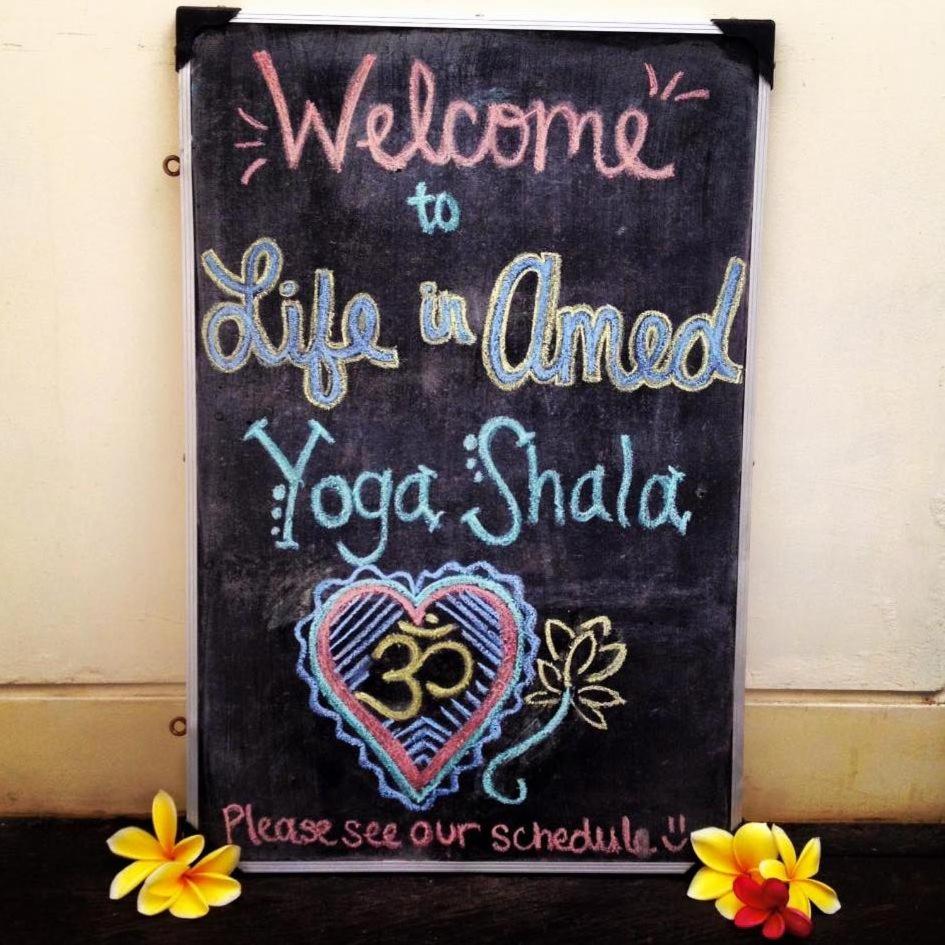 Welcome
to
Life in Amed
Yoga Shala
ॐ
Please see our schedule